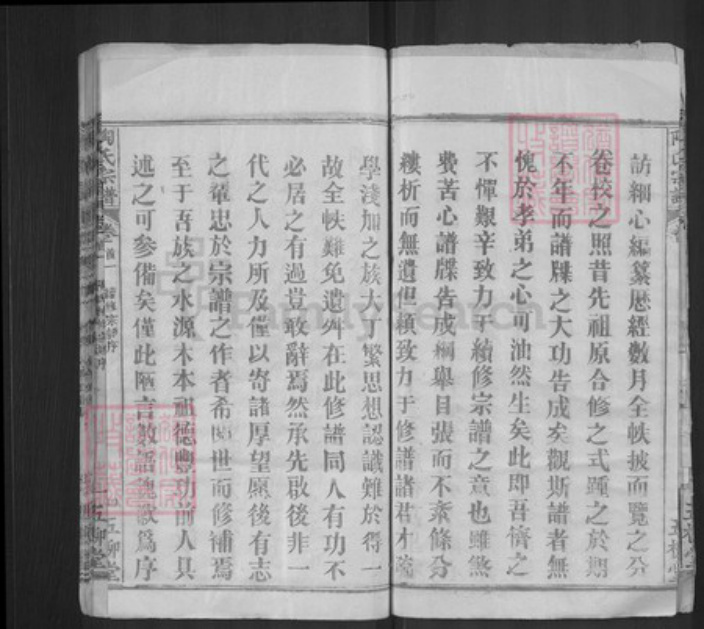 訪細心編纂歷經數月全帙披而覽之分
卷校之照昔先祖原合修之式踵之於期
不年而譜牒之大功告成矣觀斯譜者無
愧於孝弟之心可油然生矣此即吾儕之
不憚艱辛致力于續修宗譜之意也雖煞
費苦心譜牒告成綱舉目張而不紊條分
縷析而無遺但賴致力于修譜諸君才疏
學淺加之族大丁繁思想認識難於得一
故全帙難免遺舛在此修譜同人有功不
必居之有過豈敢辭焉然承先啟後非一
代之人力所及僅以寄諸厚望愿後有志
之輩忠於宗譜之作者希因世而修補焉
至于吾族之水源木本祖德豐功前人具
述之可參備矣僅此陋言數語愧歉爲序
陶氏宗譜
卷首一
五柳堂
陶氏宗譜
五柳堂
FamilySearch